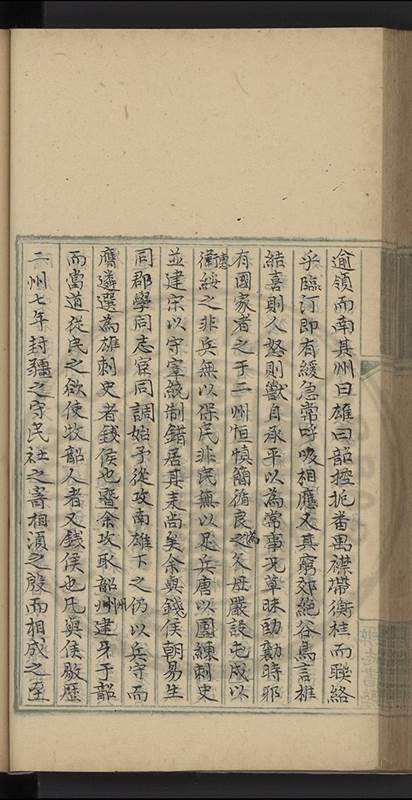 逾領而南其州曰雄曰韶控扼番禺襟帶衡桂而聯絡
乎臨汀即有緩急常呼吸相應又其窮郊絕谷鳥言椎
結喜則人怒則獸自承平以為常事況草昧勁勷時邪
有國家者之于二州恒慎簡循良之為父母嚴設屯戍以
衛綏之非兵無以保民非民無以足兵唐以團練刺史
並建宋以守宰統制錯居其来尚矣余與錢侯朝易生
同郡學同志宦同調始予從攻南雄下之仍以兵守而
膺遴選為雄刺史者錢侯也暨余攻取韶州建牙于韶
而當道從民之欲使牧韶人者又錢侯也凡與侯敭歷
二州七年封疆之守民社之寄相須之殷而相成之至